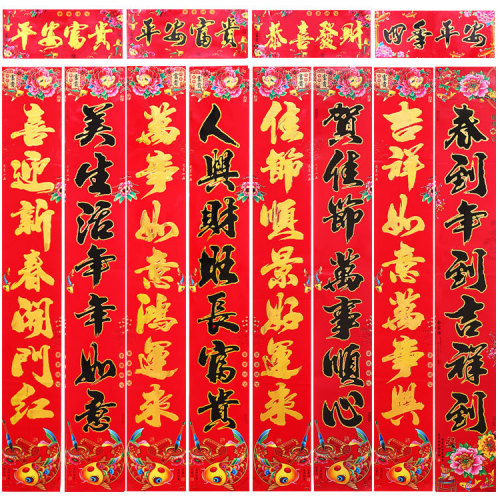 平安富貴
平安富貴
恭喜發財
四季平安
春到年到吉祥到
吉祥如意萬事興
賀佳節萬事順心
佳節順景好運来
人興財旺長富貴
萬事如意鴻運来
美生活年年如意
喜迎新春開門红